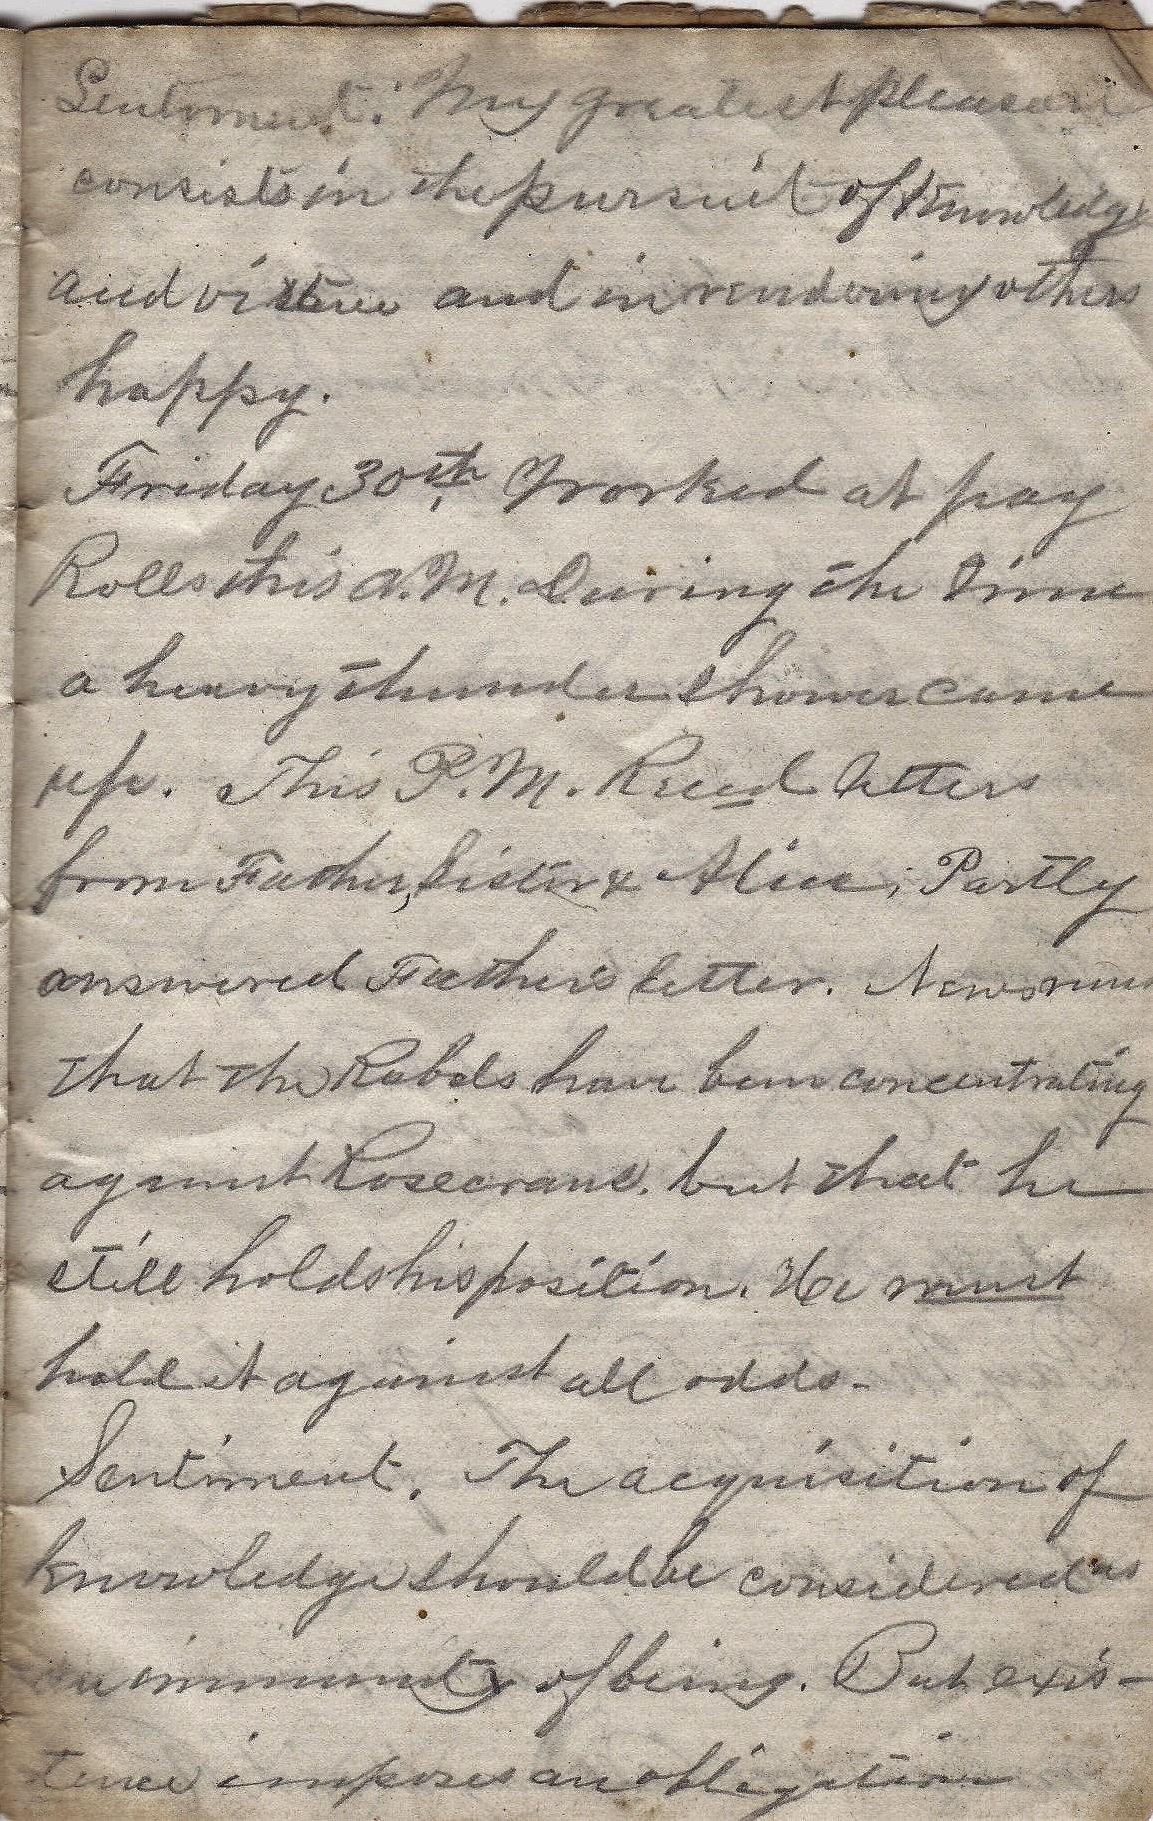 Sentiment. My greatest pleasure
consists in the pursuit of knowledge
and virtue and in rendering others
happy.
Friday 30th Worked at pay
Rolls this A.M. During the time
a heavy thunder shower came
up. This P.M. Recd letters
from Father, Sister & Alice; Partly
answered Father's letter. News
that the Rebels have been concentrating
against Rosecrans. but that he
still holds his position. He must
hold it against all odds.
Sentiment. The acquisition of
knowledge should be considered as
an immunity of being. But exis-
tence imposes an obligation